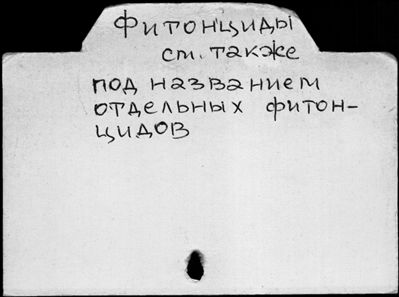 Фитонциды
см. также
под названием
отдельных фитон-
цидов